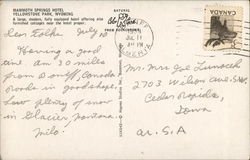 MAMMOTH SPRINGS HOTEL
YELLOWSTONE PARK, WYOMING
A large, modern, fully equipped hotel offering also
furnished cottages near the hotel proper.
NATURAL
COLOR
Dear Folks July 10
Having a good
time. Am 30 miles
from Banff, Canada
Roads in good shape.
Saw plenty of snow
in Glacier, Montana.
Milo.
JUL 11
PM
ALBERTA
Mr. Mrs Joe
2703 Wilson Ave. S.W.
Cedar Rapids,
Iowa
U.S.A